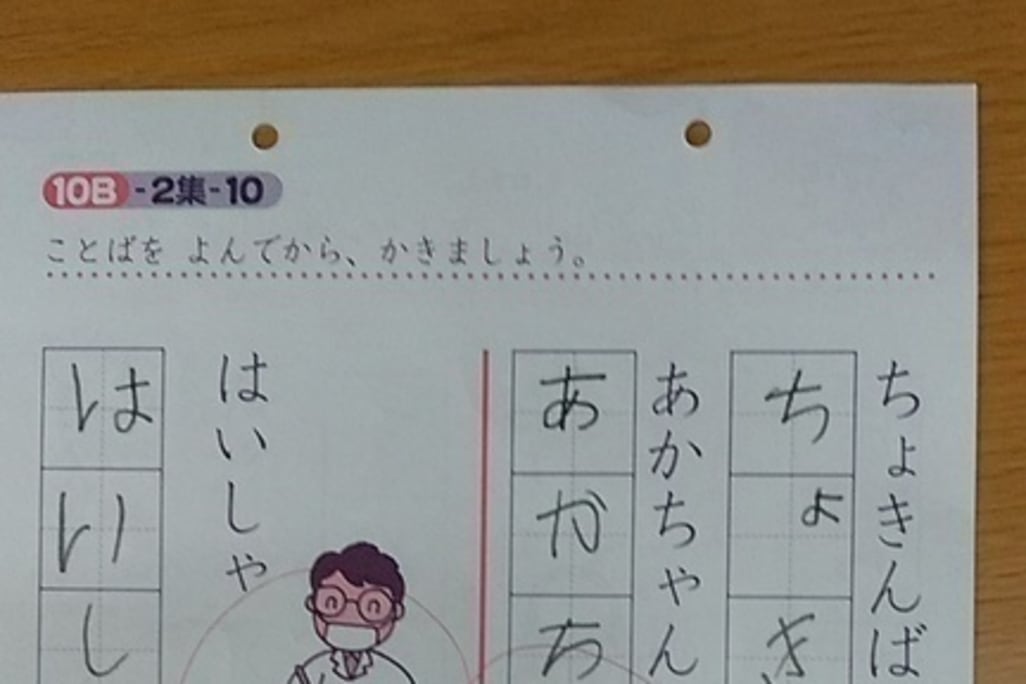 10B-2集-10
ことばを よんでから、かきましょう。
ちょきんば
ちょき
あかちゃん
あかち
はいしゃ
はいし